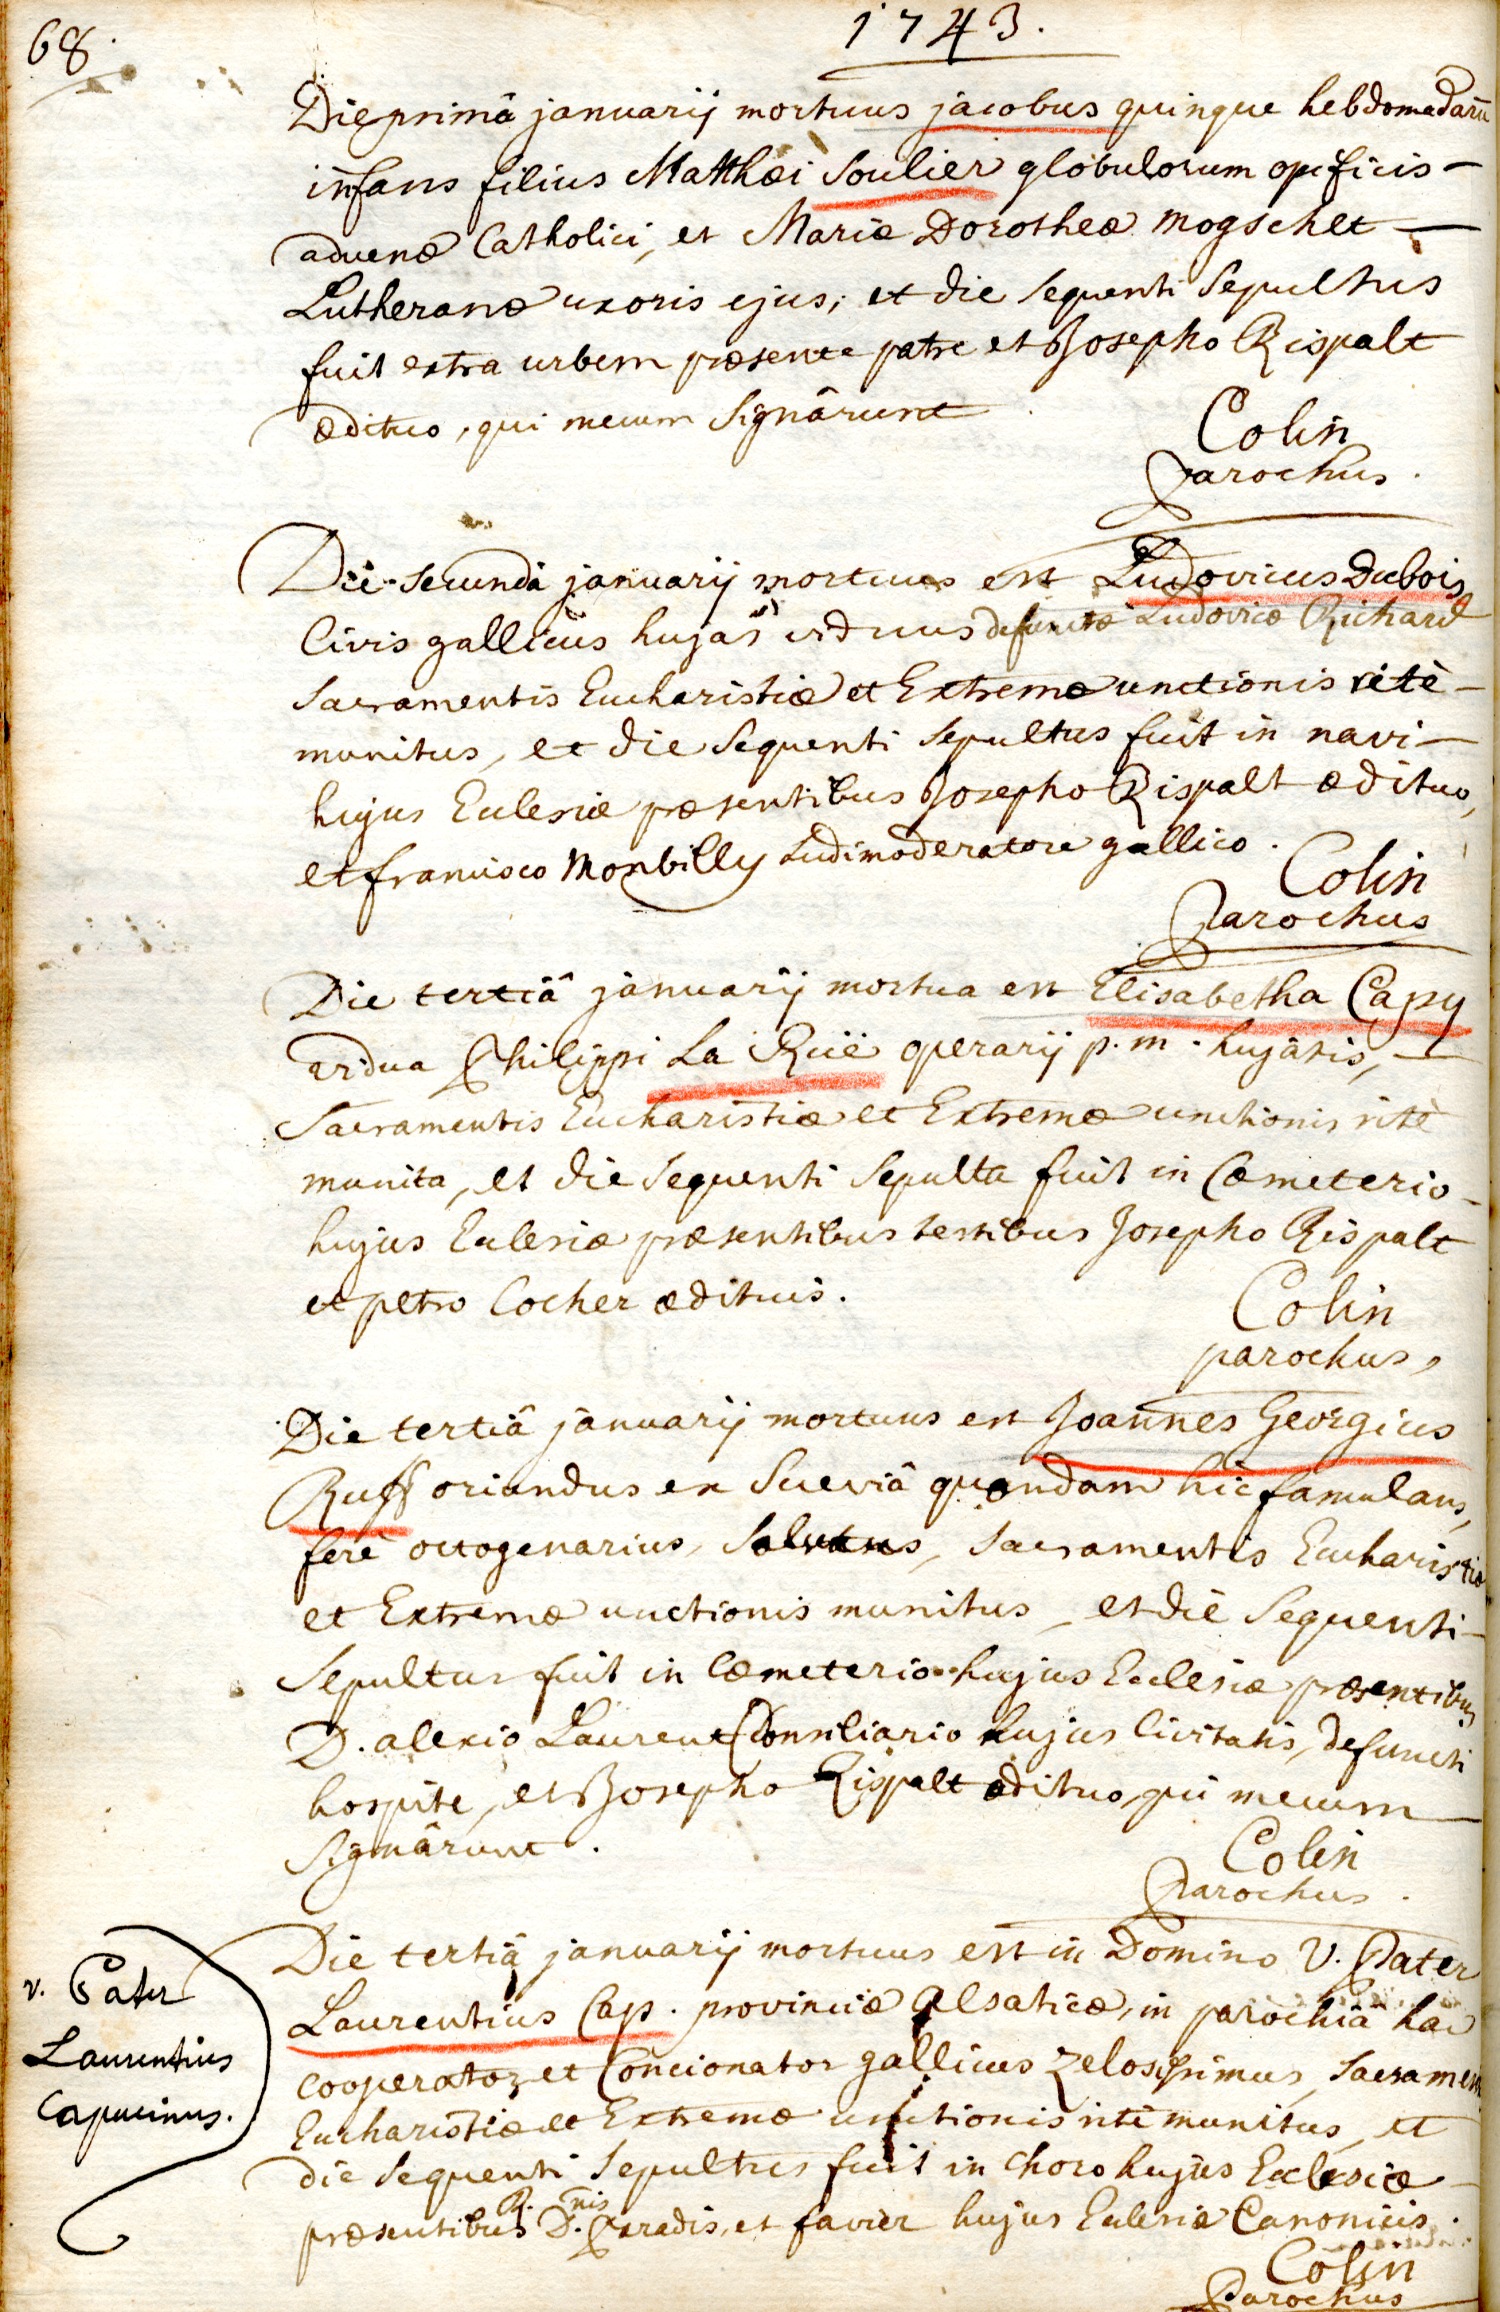 68.
1743.
Die primâ januarij mortuus jacobus quinque hebdomadarū
infans filius Matthæi Soulier globulorum opificis -
advenæ Catholici, et Mariæ Dorotheæ Mogschet —
Lutheranæ uxoris ejus; et die sequenti sepultus
fuit extra urbem præsente patre et Josepho Rispalt
ædituo, qui mecum signârunt.
Colin
parochus.
Die secundâ januarij mortuus est Ludovicus Dubois
Civis gallicus hujas viduus defunctæ Ludovicæ Richard
Sacramentis Eucharistiæ et Extremæ unctionis ritè -
munitus, et die sequenti sepultus fuit in navi -
hujus Ecclesiæ præsentibus Josepho Rispalt ædituo,
et francisco Monbilly Ludimoderatore gallico.
Colin
Parochus
Die tertiâ januarij mortua est Elisabetha Capy
vidua Philippi La Ruë operarij p. m. hujatis, —
Sacramentis Eucharistiæ et Extremæ unctionis ritè
munita, et die sequenti sepulta fuit in Cœmeterio -
hujus Ecclesiæ præsentibus testibus Josepho Rispalt
et petro Cocher ædituis.
Colin
parochus,
Die tertiâ januarij mortuus est Joannes Georgius
Ruff oriundus ex Sueviâ quondam hic famulans,
ferè octogenarius, solutus, sacramentis Eucharistiæ
et Extremæ unctionis munitus, et die sequenti -
Sepultus fuit in Cœmeterio hujus Ecclesiæ præsentibus
D. alexio Laurent Consiliario hujus Civitatis, defuncti
hospite, et Josepho Rispalt ædituo, qui mecum —
signârunt.
Colin
Parochus.
v. Pater
Laurentius
Capucinus.
Die tertiâ januarij mortuus est in Domino V. Pater
Laurentius Cap. provinciæ Alsaticæ, in parochiâ hac
cooperator et Concionator gallicus zelosissimus, Sacramen
Eucharistiæ et Extremæ unctionis ritè munitus, et
die sequenti sepultus fuit in choro hujus Ecclesiæ -
præsentibus R. D.nis Paradis, et favier hujus Ecclesiæ Canonicis.
Colin
Parochus